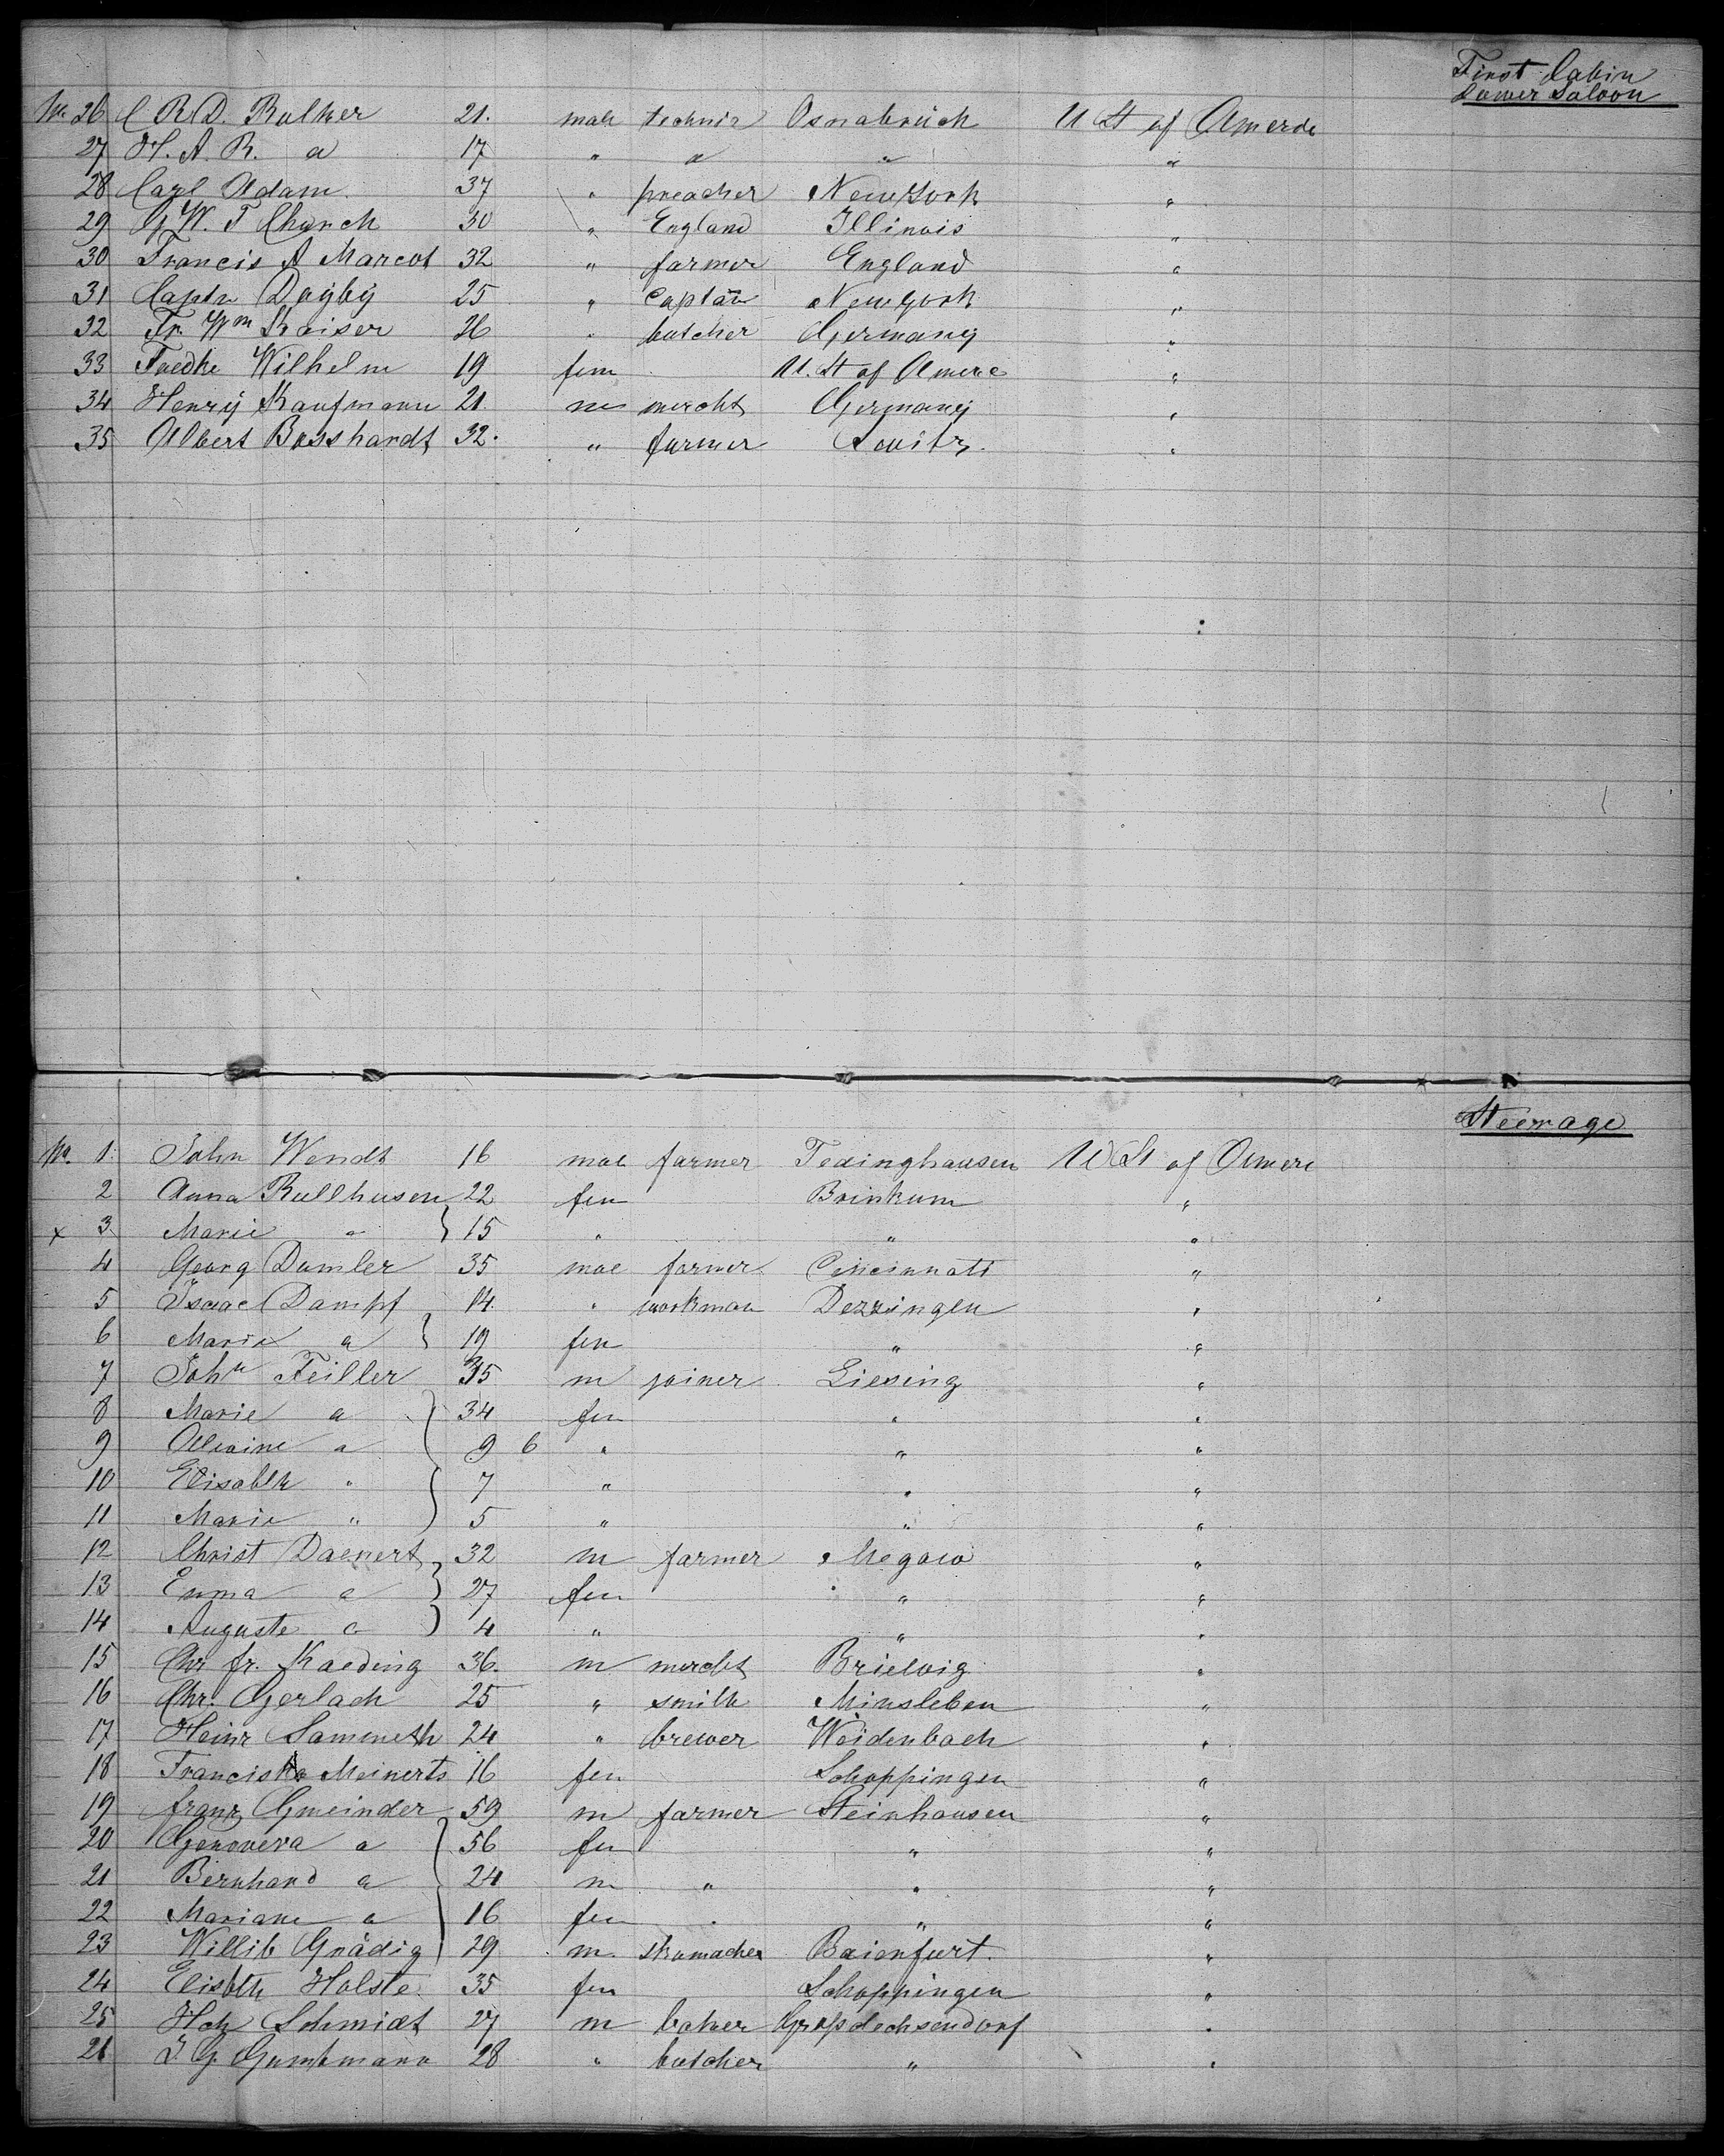 First Cabin
Lower Saloon
No. 26 C R D. Rulker 21. male technic Osnabrück U St of Amerce
27 H. A. R. " 17 " " " "
28 Carl Adam 37 " preacher NewYork "
29 G W. T Church 30 " England Illinois "
30 Francis A Marcot 32 " farmer England "
31 Captn Dayby 25 " Captain Newyork "
32 Fr. Wm Kaiser 26 " butcher Germany "
33 Wilhelm 19 fem U. St of Amerc "
34 Henry Kaufmann 21. m mercht Germany "
35 Albert Bosshardt 32. " farmer Switz. "
Steerage
No. 1. John Wendt 16 mal farmer Tedinghausen U St of Amerc
2 Anna Rullhusen 22 fem Brinkum "
x 3 Marie " } 15 " " "
4 Georg Damler 35 mal farmer Cincinnati "
5 Isaac Dampf 14. " workman Dezzingen "
6 Marie " } 19 fem " "
7 John Feiller 35 m joiner Liesing "
8 Marie " 34 fem " "
9 " 9 6 " " "
10 Elisabth " 7 " " "
11 Marie " 5 " " "
12 Christ Daenert 32 m farmer Megow "
13 Emma " } 27 fem " "
14 Auguste " ) 4 " " "
15 Chr fr. Kaeding 36. m mercht Brielvig "
16 Chr. Gerlach 25 " smith Minsleben "
17 Heinr Sammeth 24 " brewer Weidenbach "
18 Franciska Meinerts 16 fem Schoppingen "
19 franz Gmeinder 59 m farmer Steinhausen "
20 Genovera " 56 fem " "
21 Bernhard " 24 m " " "
22 Mariane " 16 fem " " "
23 Willib Gnädig 29 m. shumacher Baienfurt. "
24 Elisbth Holste 35 fem Schoppingen "
25 Hch Schmidt 27 m baker Großdechsendorf "
26 J. G. Gumbmann 28 " butcher " "